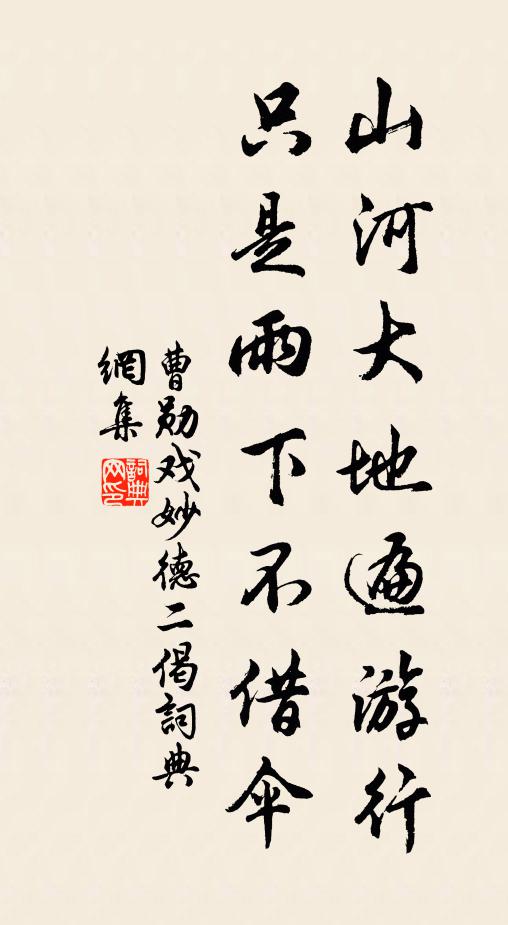 山河大地遍游行
只是雨下不借伞
曹勋戏妙德二偈詞典
網集
詞典
网印